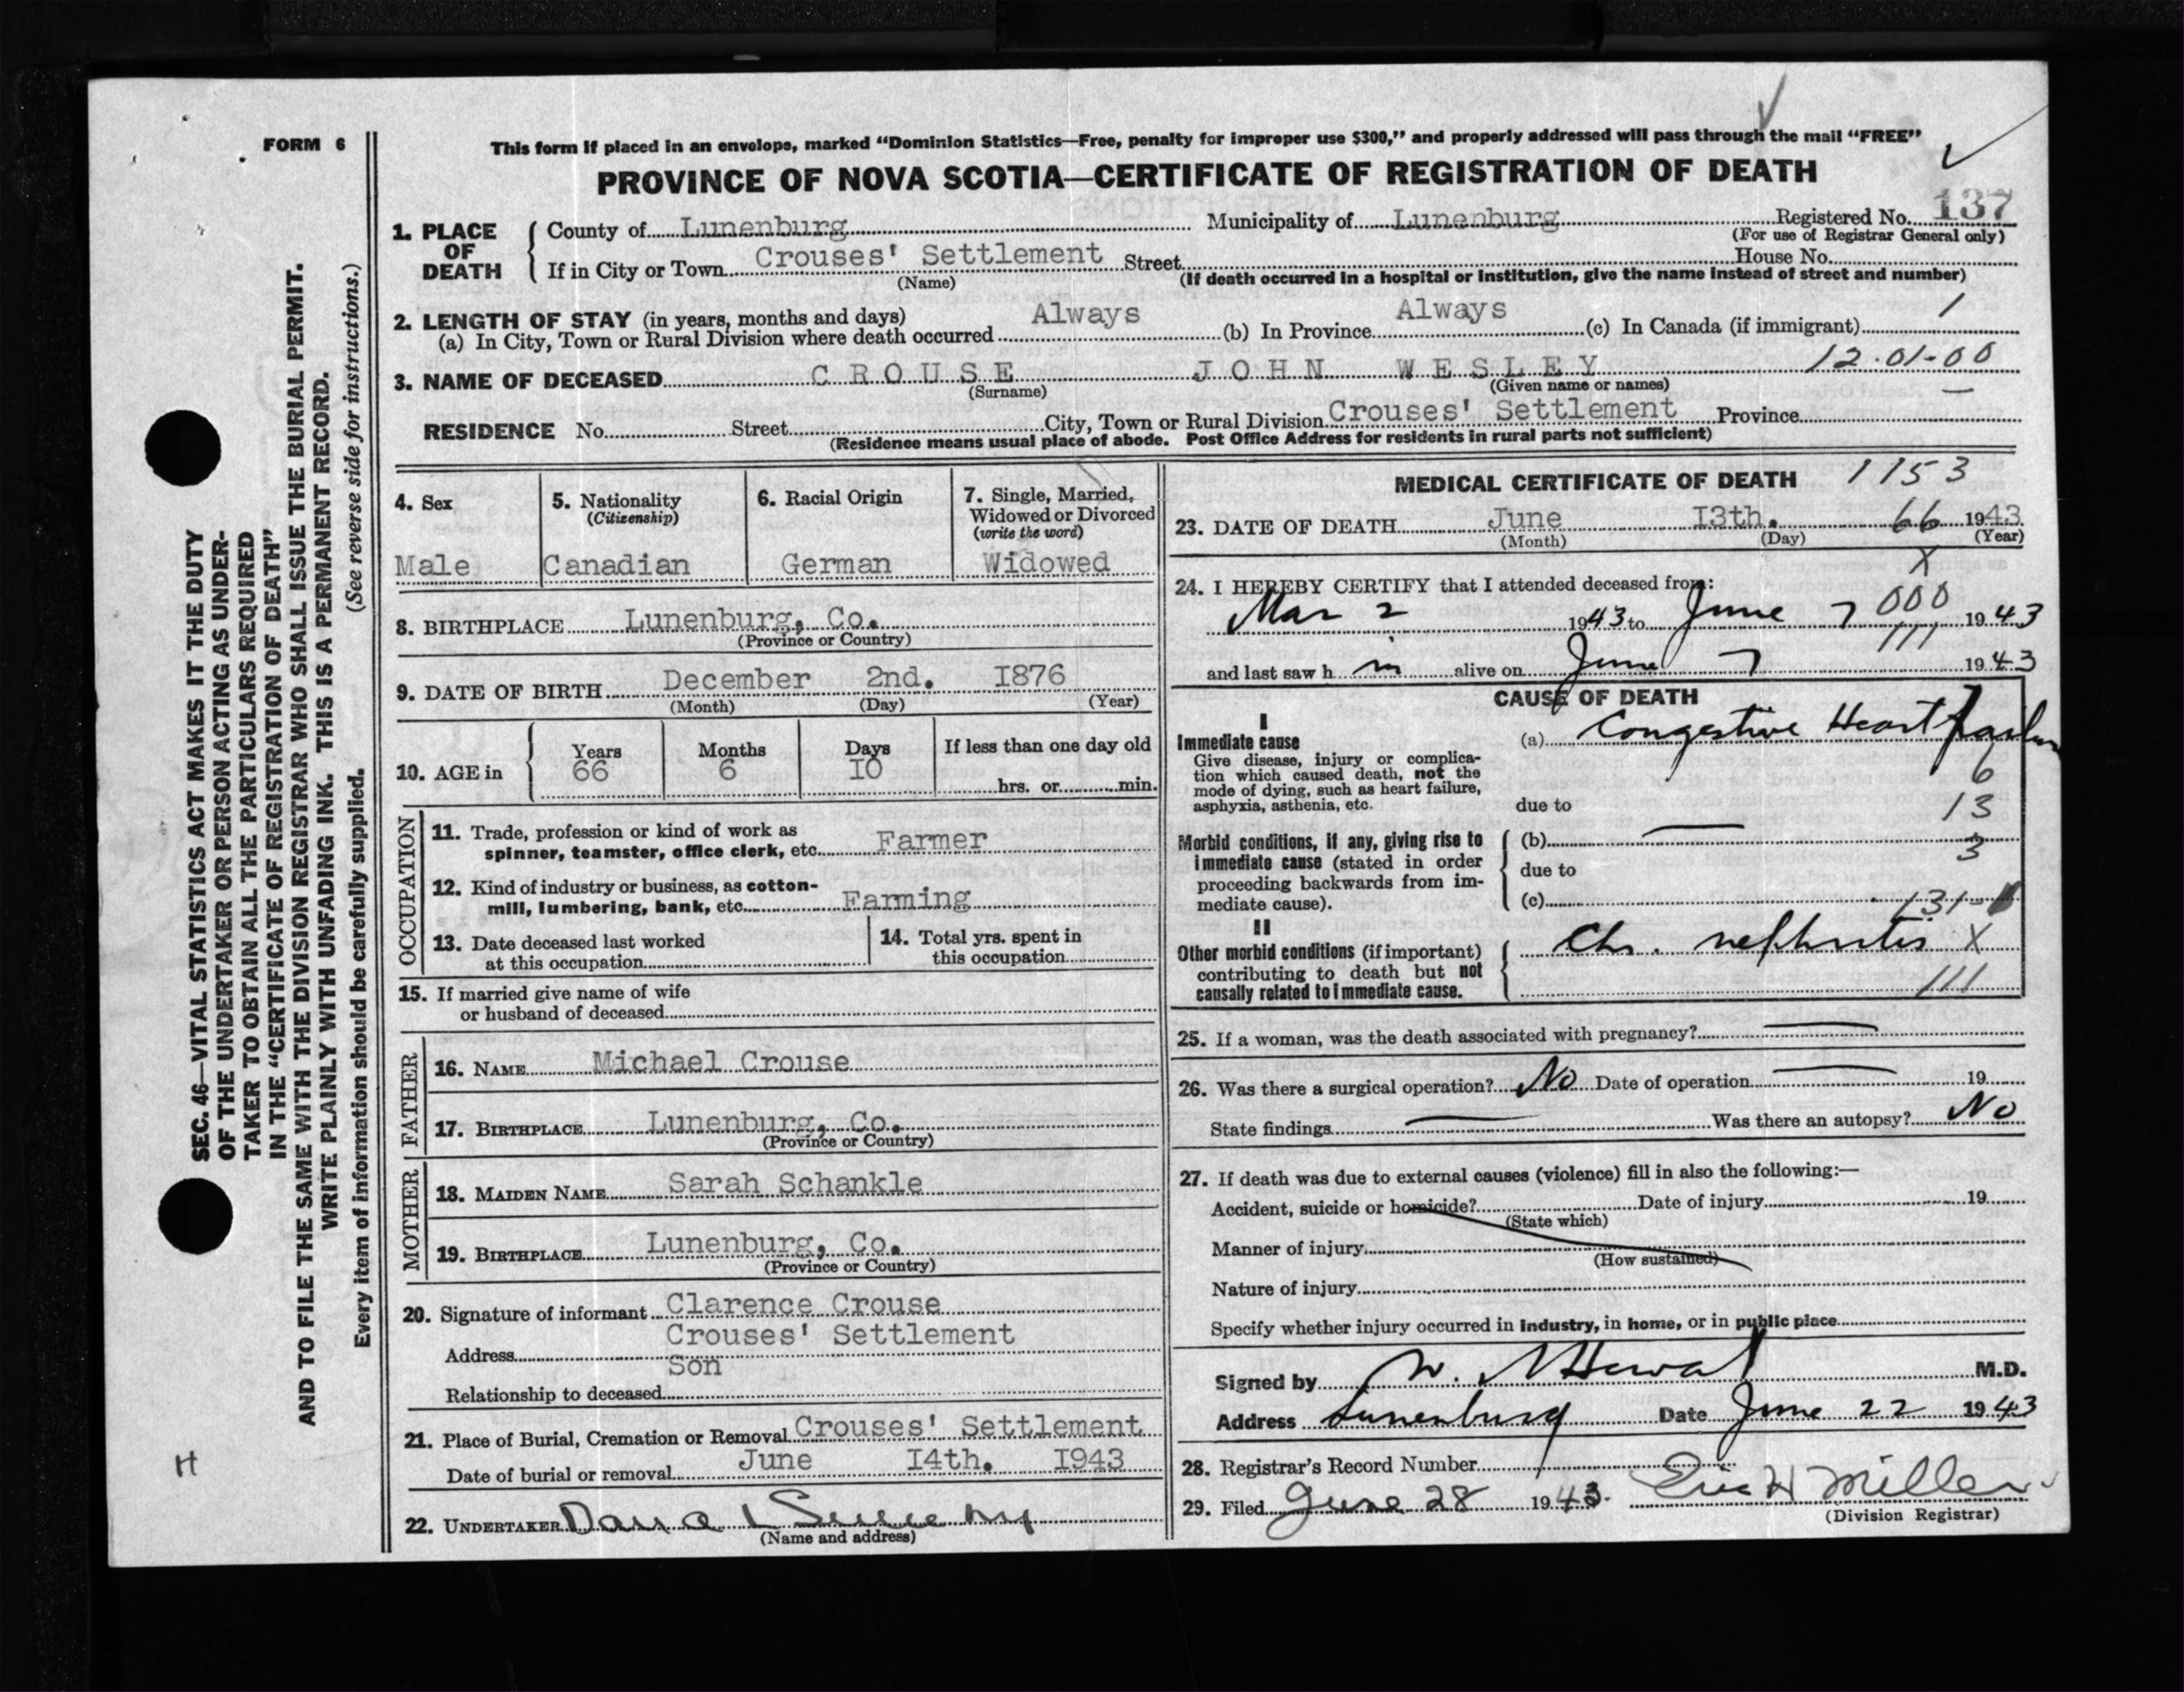 FORM 6
This form if placed in an envelope, marked “Dominion Statistics—Free, penalty for improper use $300,” and properly addressed will pass through the mail “FREE”
PROVINCE OF NOVA SCOTIA—CERTIFICATE OF REGISTRATION OF DEATH
137
1. PLACE OF DEATH
County of Lunenburg Municipality of Lunenburg Registered No.
(For use of Registrar General only)
If in City or Town Crouses' Settlement Street House No.
(Name) (If death occurred in a hospital or institution, give the name instead of street and number)
2. LENGTH OF STAY (in years, months and days)
(a) In City, Town or Rural Division where death occurred Always (b) In Province Always (c) In Canada (if immigrant) 1
3. NAME OF DECEASED CROUSE JOHN WESLEY 12.01-00
(Surname) (Given name or names)
RESIDENCE No. Street City, Town or Rural Division Crouses' Settlement Province —
(Residence means usual place of abode. Post Office Address for residents in rural parts not sufficient)
4. Sex
Male
5. Nationality
(Citizenship)
Canadian
6. Racial Origin
German
7. Single, Married,
Widowed or Divorced
(write the word)
Widowed
8. BIRTHPLACE Lunenburg, Co.
(Province or Country)
9. DATE OF BIRTH December 2nd. I876
(Month) (Day) (Year)
10. AGE in
Years Months Days If less than one day old
66 6 IO
hrs. or min.
OCCUPATION
11. Trade, profession or kind of work as
spinner, teamster, office clerk, etc. Farmer
12. Kind of industry or business, as cotton-
mill, lumbering, bank, etc. Farming
13. Date deceased last worked
at this occupation
14. Total yrs. spent in
this occupation
15. If married give name of wife
or husband of deceased
FATHER
16. NAME Michael Crouse
17. BIRTHPLACE Lunenburg, Co.
(Province or Country)
MOTHER
18. MAIDEN NAME Sarah Schankle
19. BIRTHPLACE Lunenburg, Co.
(Province or Country)
20. Signature of informant Clarence Crouse
Address Crouses' Settlement
Relationship to deceased Son
21. Place of Burial, Cremation or Removal Crouses' Settlement
Date of burial or removal June I4th. I943
22. UNDERTAKER
(Name and address)
MEDICAL CERTIFICATE OF DEATH 1153
23. DATE OF DEATH June I3th. 66 1943
(Month) (Day) (Year)
X
24. I HEREBY CERTIFY that I attended deceased from:
000
Mar 2 1943 to June 7 1943
111
and last saw h m alive on June 7 1943
CAUSE OF DEATH
I
Immediate cause
Give disease, injury or complica-
tion which caused death, not the
mode of dying, such as heart failure,
asphyxia, asthenia, etc.
(a) Congestive Heart failure
6
due to 13
Morbid conditions, if any, giving rise to
immediate cause (stated in order
proceeding backwards from im-
mediate cause).
(b) — 3
due to
(c) 131-
II
Other morbid conditions (if important)
contributing to death but not
causally related to immediate cause.
Chr. nephritis X
111
25. If a woman, was the death associated with pregnancy? —
26. Was there a surgical operation? No Date of operation — 19
State findings — Was there an autopsy? No
27. If death was due to external causes (violence) fill in also the following:—
Accident, suicide or homicide? Date of injury 19
(State which)
Manner of injury
(How sustained)
Nature of injury
Specify whether injury occurred in industry, in home, or in public place
Signed by M.D.
Address Lunenburg Date June 22 1943
28. Registrar's Record Number
29. Filed June 28 1943. Eric H Miller
(Division Registrar)
SEC. 46—VITAL STATISTICS ACT MAKES IT THE DUTY
OF THE UNDERTAKER OR PERSON ACTING AS UNDER-
TAKER TO OBTAIN ALL THE PARTICULARS REQUIRED
IN THE “CERTIFICATE OF REGISTRATION OF DEATH”
AND TO FILE THE SAME WITH THE DIVISION REGISTRAR WHO SHALL ISSUE THE BURIAL PERMIT.
WRITE PLAINLY WITH UNFADING INK. THIS IS A PERMANENT RECORD.
Every item of information should be carefully supplied. (See reverse side for instructions.)
H